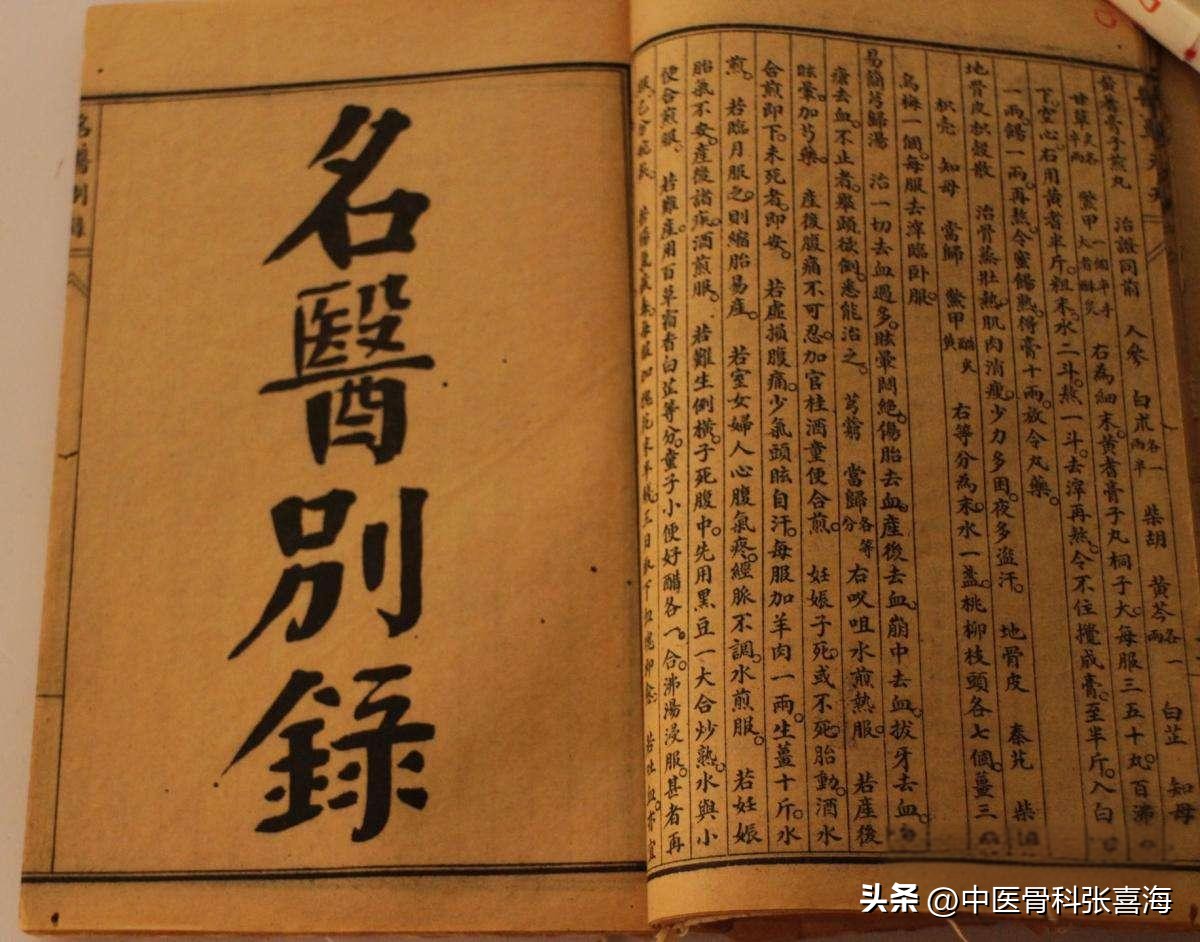 黃耆膏子煎丸 治證同前 人參 白朮各一兩半 柴胡 黃芩各一兩 白芷 知母
甘草炙各半兩 鱉甲一個半手大者酥炙 右為細末黃耆膏子丸桐子大每服三五十丸。百沸
下。空心。右用黃耆半斤。粗末。水二斗。熬一斗。去滓再熬。令不住攪成膏。至半斤。入白
一兩。餳一兩。再熬。令蜜餳熟。得膏十兩。放令丸藥。
地骨皮枳殼散 治骨蒸壯熱。肌肉消瘦。少力多困。夜多盜汗。 地骨皮 秦艽 柴
枳壳 知母 當歸 鱉甲醋炙黃 右等分為末。水一盞。桃柳枝頭各七個。薑三
烏梅一個。每服去滓臨卧服。
易簡芎歸湯 治一切去血過多。眩暈悶絕。傷胎去血。產後去血。崩中去血。拔牙去血。
瘡去血。不止者。舉頭欲倒。悉能治之。 芎藭 當歸各等分 右㕮咀水煎熱服。 若產後
眩暈。加芍藥。 產後腹痛不可忍。加官桂酒童便合煎。 妊娠子死。或不死。胎動。酒水
合煎即下。未死者。即安。 若虛損腹痛。少氣頭眩自汗。每服加羊肉一兩。生薑十斤。水
煎。 若臨月服之。則縮胎易產。 若室女婦人心腹氣疼。經脈不調。水煎服。 若妊娠
胎氣不安。產後諸疾。酒煎服。 若難生倒橫。子死腹中。先用黑豆一大合炒熟。水與小
便合煎服。 若難產。用百草霜香白芷等分。童子小便好醋各一。合沸湯浸服。甚者再
名醫別錄
頭条 @中医骨科张喜海